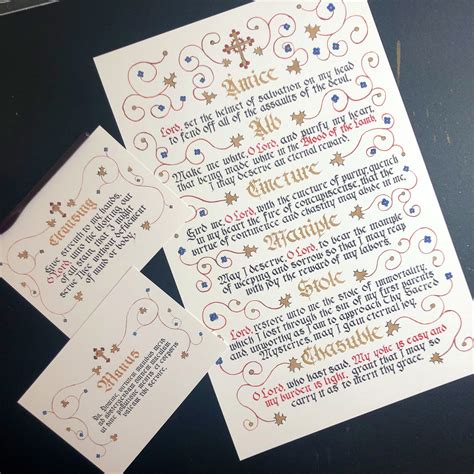 Amice
Lord, set the helmet of salvation on my head
to fend off all of the assaults of the devil.
Alb
Make me white, O Lord, and purify my heart,
that being made white in the Blood of the Lamb
I may deserve an eternal reward.
Cincture
Gird me, O Lord, with the cincture of purity; quench
in my heart the fire of concupiscence, that the
virtue of continence and chastity may abide in me.
Maniple
May I deserve, O Lord, to bear the maniple
of weeping and sorrow so that I may reap
with joy the reward of my labors.
Stole
Lord, restore unto me the stole of immortality,
which I lost through the sin of my first parents
and, unworthy as I am to approach Thy Sacred
Mysteries, may I gain eternal joy.
Chasuble
O Lord, who hast said, My yoke is easy and
my burden is light, grant that I may so
carry it as to merit thy grace.
Cleansing
Give strength to my hands,
O Lord,
of all stains, that I may
serve thee without defilement
of mind or body.
Manus
Da, Domine, virtutem manibus meis
ad abstergendam omnem maculam
ut sine pollutione mentis et corporis
valeam tibi servire.